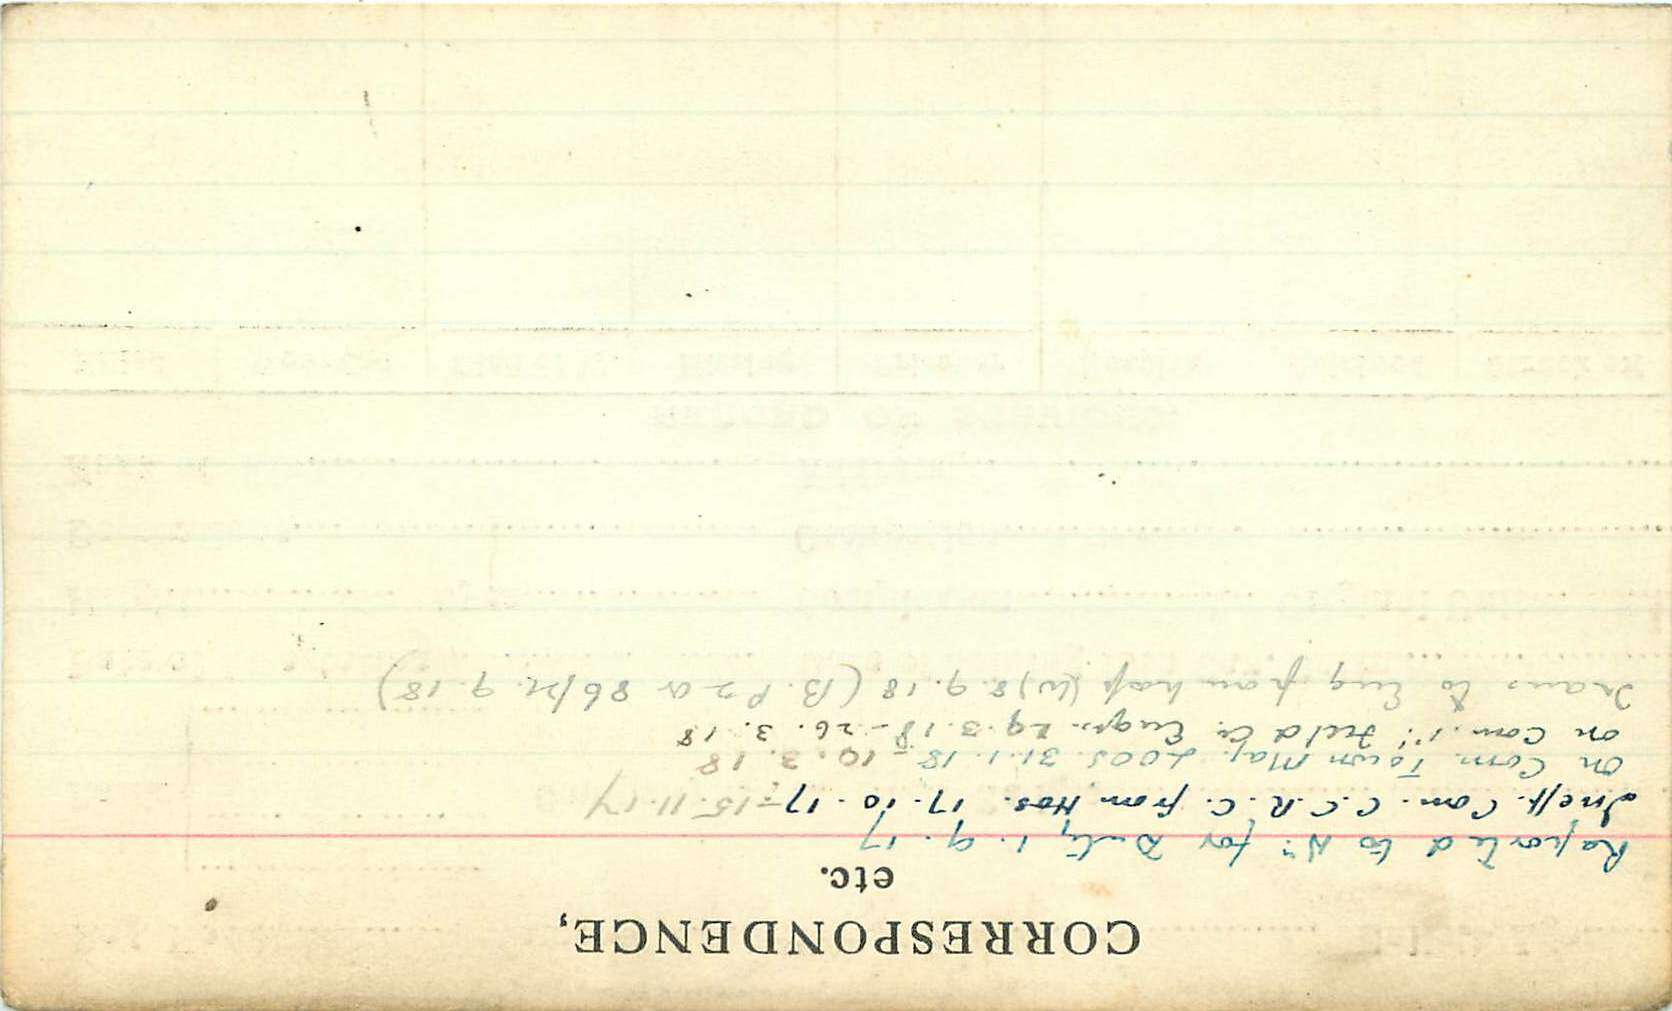 CORRESPONDENCE,
etc.
Reported to for Duty 1.9.17
Com. C.C.R.C. from Hos. 17.10.17 - 15.11.17
On Com. Town Maj. LOOS. 31.1.18 - 10.3.18
On Com. 1st Field Co. Engrs. 29.3.18 - 26.3.18
Trans to Eng from hosp (W) 8.9.18 (B. P 2 Or 86/21.9.18)